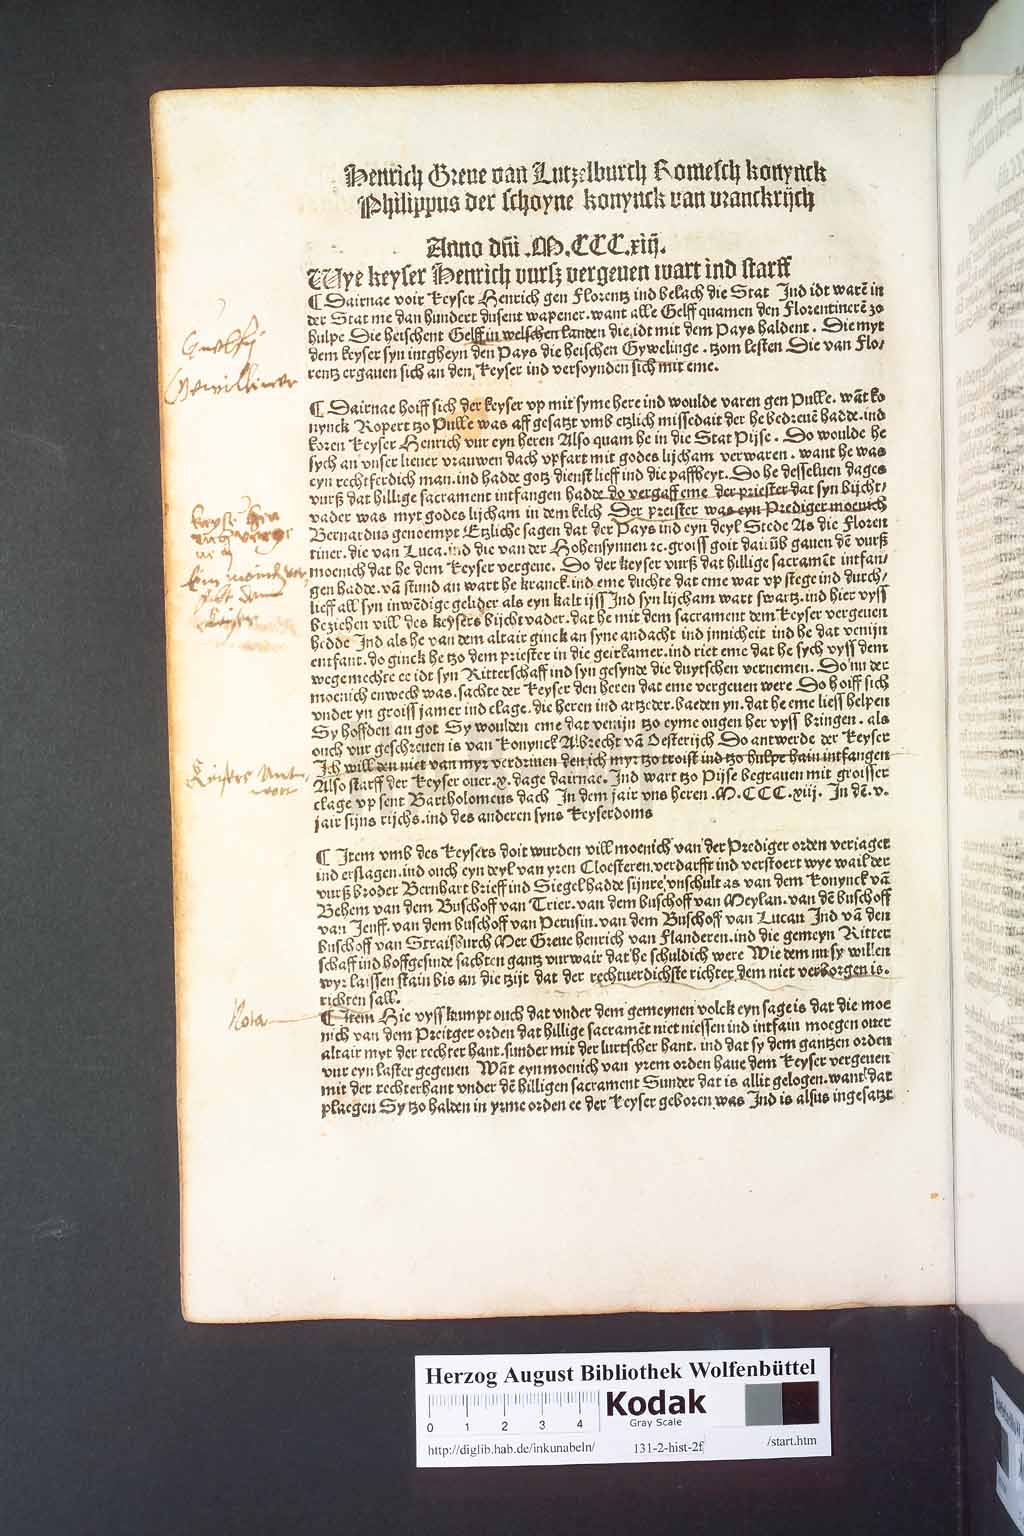 Henrich Greue van Lutzelburch Romesch konynck
Philippus der schoyne konynck van vranckrijch
Anno dñi .M.CCC.xiij.
Wye keyser Henrich vursz vergeuen wart ind starff
¶ Dairnae voir keyser Henrich gen Florentz ind belach die Stat Ind idt warē in
der Stat me dan hundert dusent wapener. want alle Gelff quamen den Florentinerē zo
hulpe Die heischent Gelff in welschen landen die, idt mit dem Pays haldent. Die myt
dem keyser syn intgheyn den Pays die heischen Gywelinge. tzom lesten Die van Flo⸗
rentz ergauen sich an den, keyser ind versoynden sich mit eme.
Guelfij
Gewilliner
¶ Dairnae hoiff sich der keyser vp mit syme here ind woulde varen gen Pulle. wāt ko
nynck Ropert tzo Pulle was aff gesatzt vmb etzlich missedait der he bedreuē hadde. ind
koren keyser Henrich vur eyn heren Also quam he in die Stat Pijse. Do woulde he
sych an vnser lieuer vrauwen dach vpfart mit godes lijcham verwaren. want he was
eyn rechtferdich man. ind hadde gotz dienst lieff ind die paffheyt. Do he desseluen dages
vurß dat hillige sacrament intfangen hadde do vergaff eme der priester dat syn bijcht⸗
vader was myt godes lijcham in dem kelch Der preister was eyn Prediger moenich
Bernardus genoempt Etzliche sagen dat der Pays ind eyn deyl Stede As die Floren
tiner. die van Luca. ind die van der Hohensynnen ⁊c. groiss goit dairūb gauen dē vurß
moenich dat he dem keyser vergeue. Do der keyser vurß dat hillige sacramēt intfan⸗
gen hadde. vā stund an wart he kranck. ind eme duchte dat eme wat vp stege ind durch⸗
lieff all syn inwēdige gelider als eyn kalt ijss Ind syn lijcham wart swartz. ind hier vyss
beziehen vill des keysers bijcht vader. dat he mit dem sacrament dem keyser vergeuen
hedde Ind als he van dem altair ginck an syne andacht ind jnnicheit ind he dat venijn
entfant. do ginck he tzo dem priester in die geirkamer. ind riet eme dat he sych vyss dem
wege mechte ee idt syn Ritterschaff ind syn gesynde die duytschen vernemen. Do nu der
moenich enwech was. sachte der keyser den heren dat eme vergeuen were Do hoiff sich
vnder yn groiss jamer ind clage. die heren ind artzeder. baeden yn. dat he eme liess helpen
Sy hoffden an got Sy woulden eme dat venijn tzo eyme ougen her vyss bringen. als
ouch vur geschreuen is van konynck Albrecht vā Oesterijch Do antwerde der keyser
Ich will den niet van myr verdriuen den ich myr tzo troist ind tzo hulpe hain intfangen
Also starff der keyser ouer .x. dage dairnae. Ind wart tzo Pijse begrauen mit groisser
clage vp sent Bartholomeus dach In dem jair vns heren .M.CCC.xiij. In dē .v.
jair sijns rijchs. ind des anderen syns keyserdoms
¶ Item vmb des keysers doit wurden vill moenich van der Prediger orden veriaget
ind erslagen. ind ouch eyn deyl van yren Cloesteren, verdarfft ind verstoert wye wail der
vurß broder Bernhart brieff ind Siegel hadde sijnre, vnschult as van dem konynck vā
Behem van dem Buschoff van Trier. van dem buschoff van Meylan. van dē buschoff
van Jenff. van dem buschoff van Perusin. van dem Buschoff van Lucan Ind vā den
buschoff van Straisburch Mer Greue henrich van Flanderen. ind die gemeyn Ritter
schaff ind hoffgesinde sachten gantz vurwair dat he schuldich were Wie dem nu sy willen
wyr laissen stain bis an die tzijt dat der rechtuerdichste richter dem niet verborgen is.
richten sall.
Nota
¶ Item Hie vyss kumpt ouch dat vnder dem gemeynen volck eyn sage is dat die moe
nich van dem Preitger orden dat hillige sacramēt niet niessen ind intfain moegen ouer
altair myt der rechter hant. sunder mit der lurtscher hant. ind dat sy dem gantzen orden
vur eyn laster gegeuen Wāt eyn moenich van yrem orden haue dem keyser vergeuen
mit der rechterhant vnder dē hilligen sacrament Sunder dat is allit gelogen. want dat
plaegen Sy tzo halden in yrme orden ee der keyser geboren was Ind is alsus ingesatzt
Herzog August Bibliothek Wolfenbüttel
0 1 2 3 4
Kodak
Gray Scale
http://diglib.hab.de/inkunabeln/ 131-2-hist-2f /start.htm